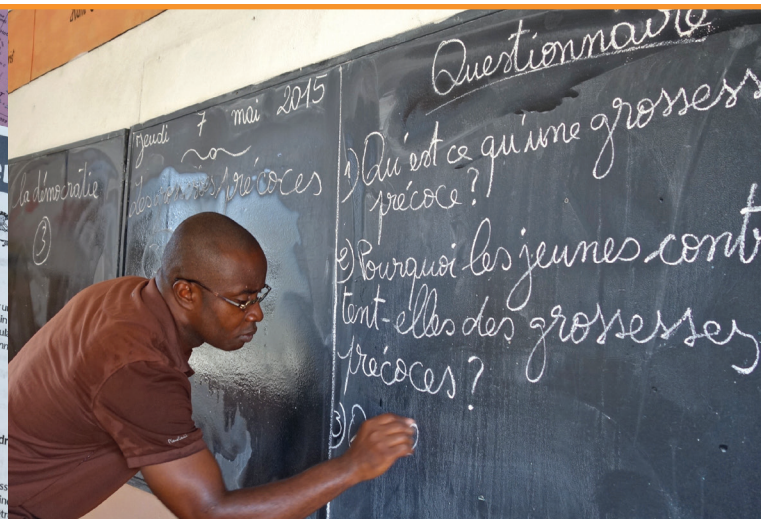 la démocratie
3
Jeudi 7 mai 2015
précoces
Questionnaire
1) Qu'est ce qu'une grossess
précoce ?
2) Pourquoi les jeunes cont
tent-elles des grossesses
précoces ?
3)